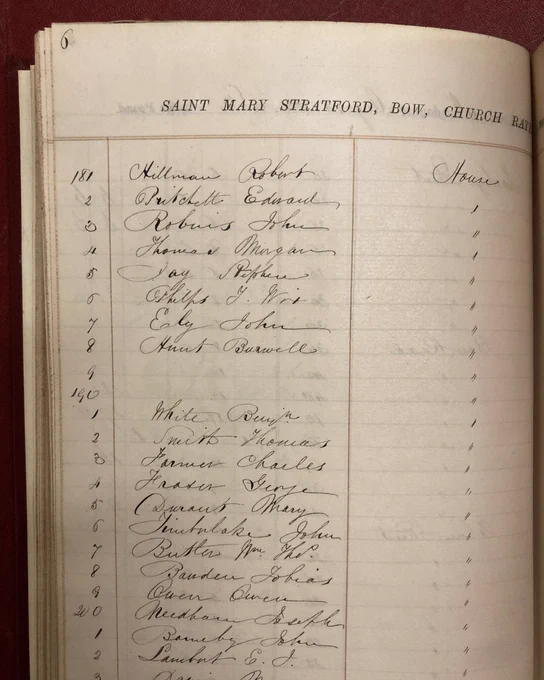 6
SAINT MARY STRATFORD, BOW, CHURCH RAT
181 Hillman Robert House
2 Pritchett Edward "
3 Robins John "
4 Thomas Morgan "
5 Jay Stephen "
6 Phelps J. "
7 Ely John "
8 Hunt Burwell "
9 "
190 "
1 White Benjn "
2 Smith Thomas "
3 Farmer Charles "
4 Fraser George "
5 Durant Mary "
6 Timberlake John "
7 Butler Wm. Thos. "
8 Bauden Tobias "
9 Owen Owen "
200 Needham Joseph "
1 Barneby John "
2 Lambert E. J. "
3